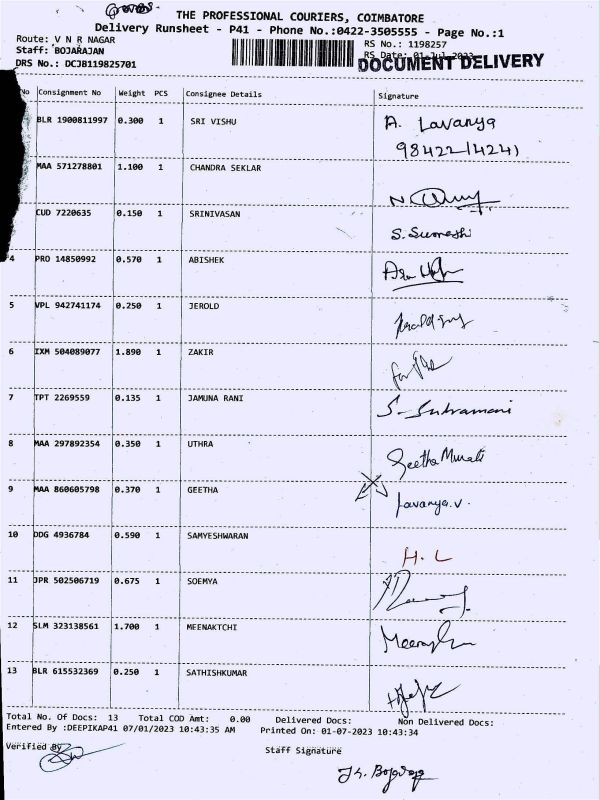 THE PROFESSIONAL COURIERS, COIMBATORE
Delivery Runsheet - P41 - Phone No.:0422-3505555 - Page No.:1
Route: V N R NAGAR
RS No.: 1198257
Staff: BOJARAJAN
RS Date: 01-Jul-2023
DOCUMENT DELIVERY
DRS No.: DCJB119825701
No Consignment No Weight PCS Consignee Details Signature
BLR 1900811997 0.300 1 SRI VISHU A. Lavanya
MAA 571278801 1.100 1 CHANDRA SEKLAR
CUD 7220635 0.150 1 SRINIVASAN S. Sumeshi
4 PRO 14850992 0.570 1 ABISHEK
5 VPL 942741174 0.250 1 JEROLD
6 IXM 504089077 1.890 1 ZAKIR
7 TPT 2269559 0.135 1 JAMUNA RANI
8 MAA 297892354 0.350 1 UTHRA Geetha Murali
9 MAA 860605798 0.370 1 GEETHA Lavanya.v.
10 DDG 4936784 0.590 1 SAMYESHWARAN H. L
11 JPR 502506719 0.675 1 SOEMYA
12 SLM 323138561 1.700 1 MEENAKTCHI
13 BLR 615532369 0.250 1 SATHISHKUMAR
Total No. Of Docs: 13 Total COD Amt: 0.00 Delivered Docs: Non Delivered Docs:
Entered By :DEEPIKAP41 07/01/2023 10:43:35 AM Printed On: 01-07-2023 10:43:34
Verified By
Staff Signature